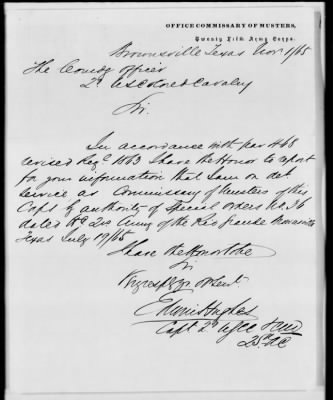 OFFICE COMMISSARY OF MUSTERS,
Twenty Fifth Army Corps.
Brownsville Texas Nov 1/65
The Comdg Officer
2d US Colored Cavalry
Sir.
In accordance with par 468
revised Regs 1863 I have the Honor to report
for your information that I am on det
service as Commissary of Musters of this
Corps by authority of Special orders No. 36
dated Army of the Rio Grande Brownsville
Texas July 19/65
I have the Honor to be
Sir
Very respy yr obt servt
Edwin Hughes
Capt 2d
25th AC